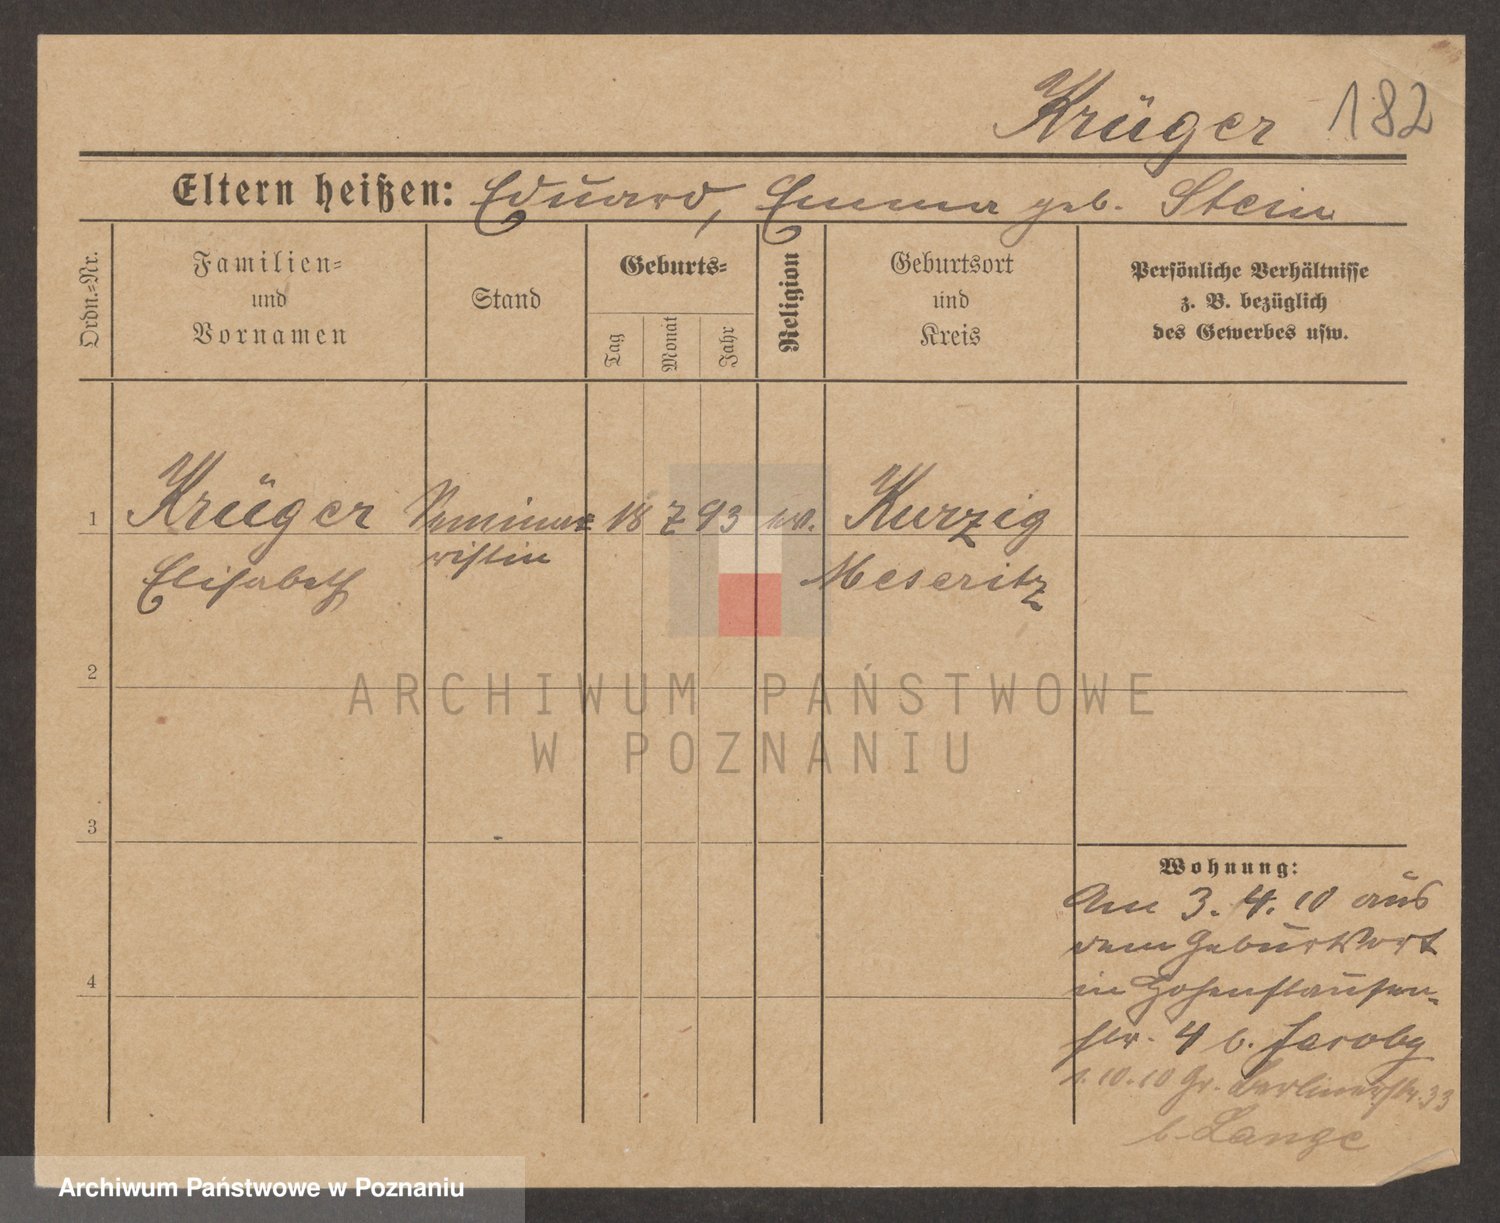 Krüger 182
Eltern heißen: Eduard, Emma geb. Stein
Ordn.=Nr.
Familien=
und
Vornamen
Stand
Geburts=
Tag
Monat
Jahr
Religion
Geburtsort
und
Kreis
Persönliche Verhältnisse
z. B. bezüglich
des Gewerbes usw.
1 Krüger Seminar 18 7 93 ev. Kurzig
Elisabeth ristin Meseritz
2
ARCHIWUM PAŃSTWOWE
W POZNANIU
3
Wohnung:
Am 3. 4. 10 aus
dem Geburtsort
4 in Hohenstaufen-
str. 4 b. Jacoby
1.10.10 Gr. Berlinerstr. 33
b. Lange
Archiwum Państwowe w Poznaniu